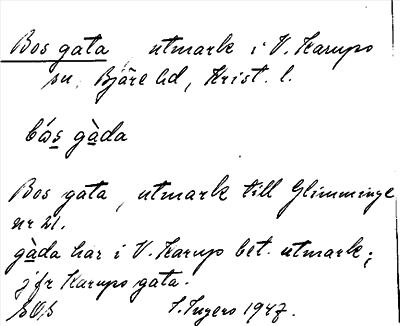 Bos gata utmark i V. Karups
sn, Bjäre hd, Krist. l.
bós gàda
Bos gata, utmark till Glimminge
nr 21.
gàda har i V. Karup bet. utmark;
jfr Karups gata.
I. Ingers 1947.